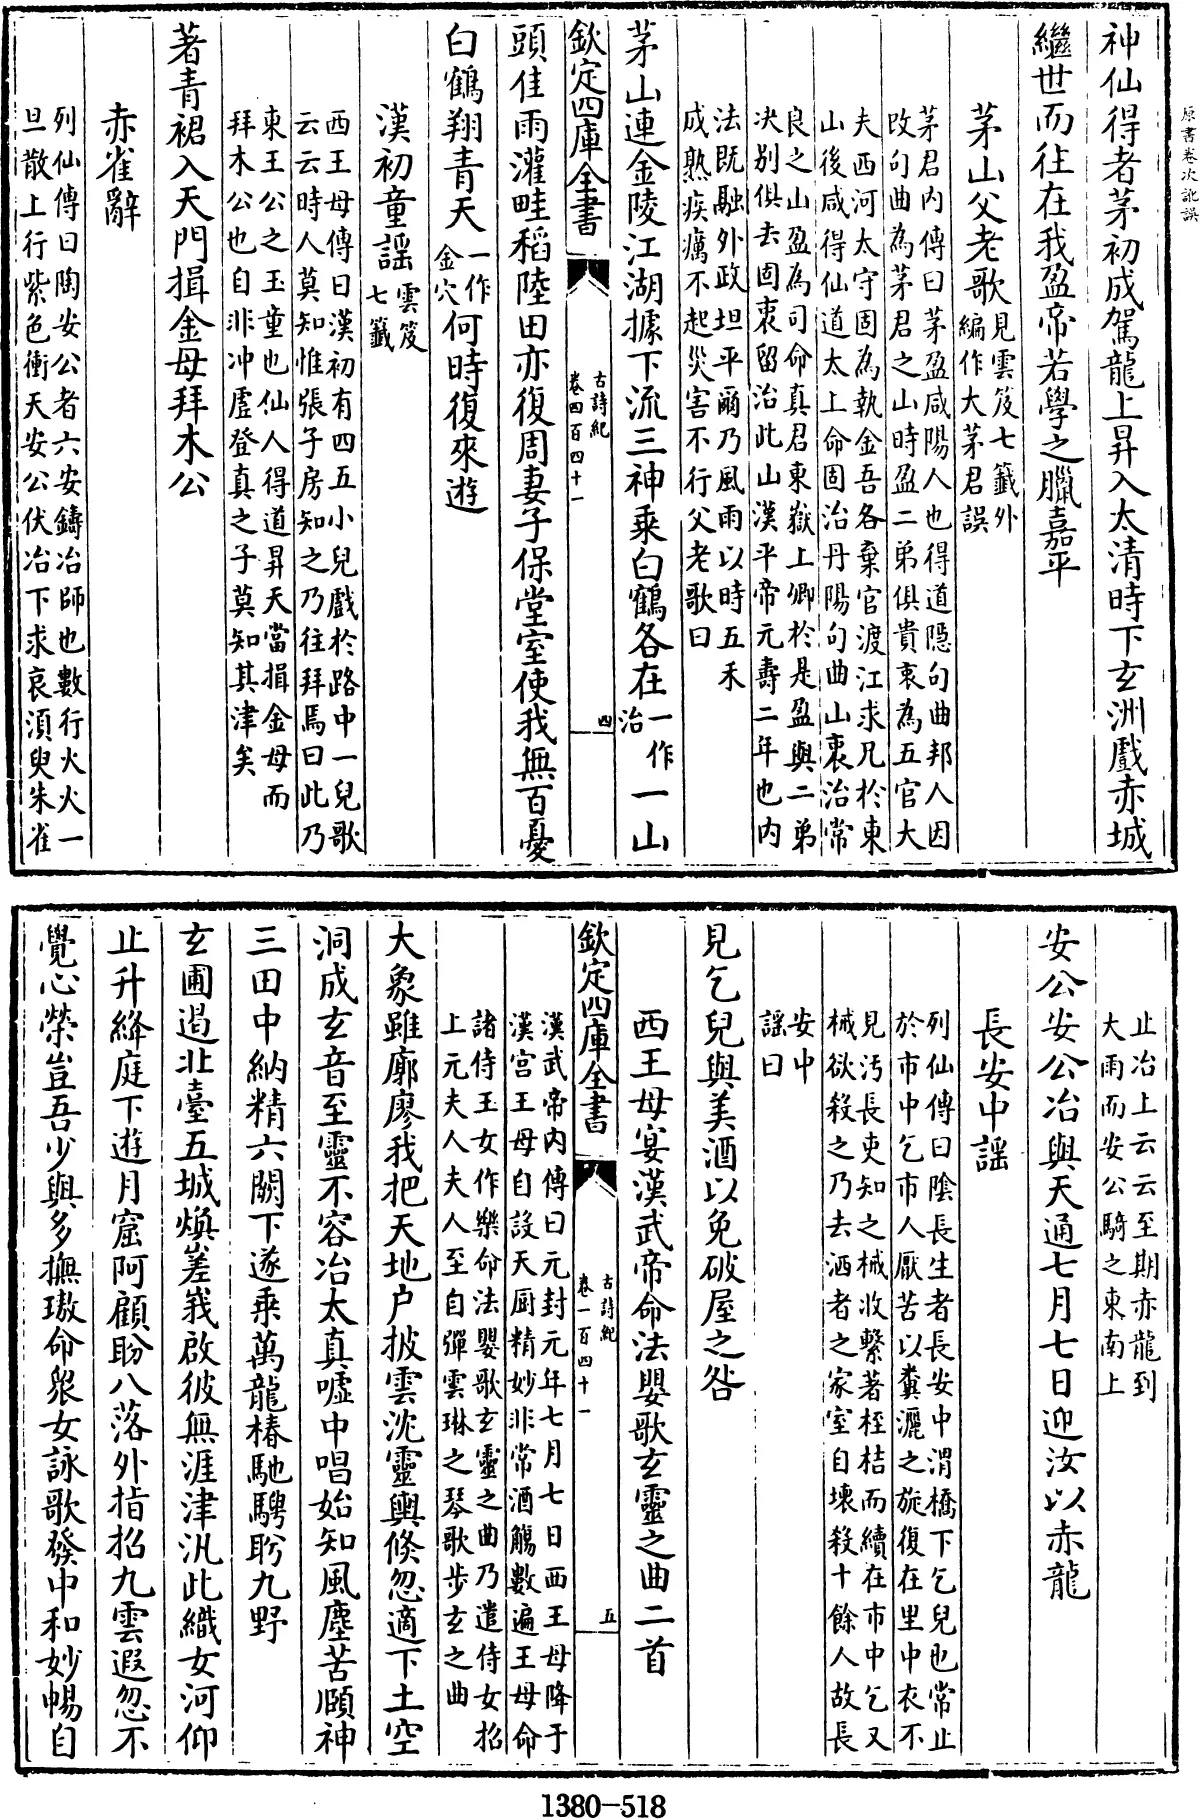 原書卷次訛誤
神仙得者茅初成駕龍上昇入太清時下玄洲戲赤城
繼世而往在我盈帝若學之臘嘉平
茅山父老歌見雲笈七籤外
編作大茅君誤
茅君内傳曰茅盈咸陽人也得道隱句曲邦人因
改句曲為茅君之山時盈二弟俱貴衷為五官大
夫西河太守固為執金吾各棄官渡江求兄於東
山後咸得仙道太上命固治丹陽句曲山衷治常
良之山盈為司命真君東嶽上卿於是盈與二弟
决别俱去固衷留治此山漢平帝元壽二年也内
法既融外政坦平爾乃風雨以時五禾
成熟疾癘不起災害不行父老歌曰
茅山連金陵江湖據下流三神乘白鶴各在一作
治一山
欽定四庫全書
古詩紀
卷四百四十一
四
頭佳雨灌畦稻陸田亦復周妻子保堂室使我無百憂
白鶴翔青天一作
金穴何時復來遊
漢初童謡雲笈
七籤
西王母傳曰漢初有四五小兒戲於路中一兒歌
云云時人莫知惟張子房知之乃往拜焉曰此乃
東王公之玉童也仙人得道昇天當揖金母而
拜木公也自非冲虛登真之子莫知其津矣
著青裙入天門揖金母拜木公
赤雀辭
列仙傳曰陶安公者六安鑄冶師也數行火火一
旦散上行紫色衝天安公伏冶下求哀須臾朱雀
止冶上云云至期赤龍到
大雨而安公騎之東南上
安公安公冶與天通七月七日迎汝以赤龍
長安中謡
列仙傳曰陰長生者長安中渭橋下乞兒也常止
於市中乞市人厭苦以糞灑之旋復在里中衣不
見污長吏知之械收繫著桎梏而續在市中乞又
械欲殺之乃去洒者之家室自壞殺十餘人故長
安中
謡曰
見乞兒與美酒以免破屋之咎
西王母宴漢武帝命法嬰歌玄靈之曲二首
欽定四庫全書
古詩紀
卷一百四十一
五
漢武帝内傳曰元封元年七月七日西王母降于
漢宫王母自設天厨精妙非常酒觴數遍王母命
諸侍玉女作樂命法嬰歌玄靈之曲乃遣侍女招
上元夫人夫人至自彈雲琳之琴歌步玄之曲
大象雖廓廖我把天地户披雲沈靈輿倏忽適下土空
洞成玄音至靈不容冶太真噓中唱始知風塵苦頤神
三田中納精六闕下遂乘萬龍椿馳騁眄九野
玄圃遏北臺五城煥嵳峩啟彼無涯津汎此織女河仰
止升絳庭下遊月窟阿顧盼八落外指招九雲遐忽不
覺心榮豈吾少與多撫璈命衆女詠歌發中和妙暢自
1380-518